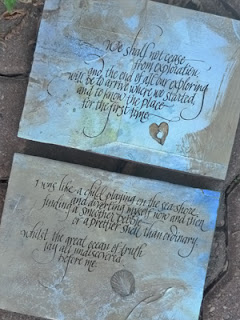 We shall not cease
from exploration,
and the end of all our exploring
will be to arrive where we started
and to know the place
for the first time.
I was like a child playing on the sea-shore,
and diverting myself now and then
finding a smoother pebble
or a prettier shell than ordinary,
whilst the great ocean of truth
lay all undiscovered
before me.